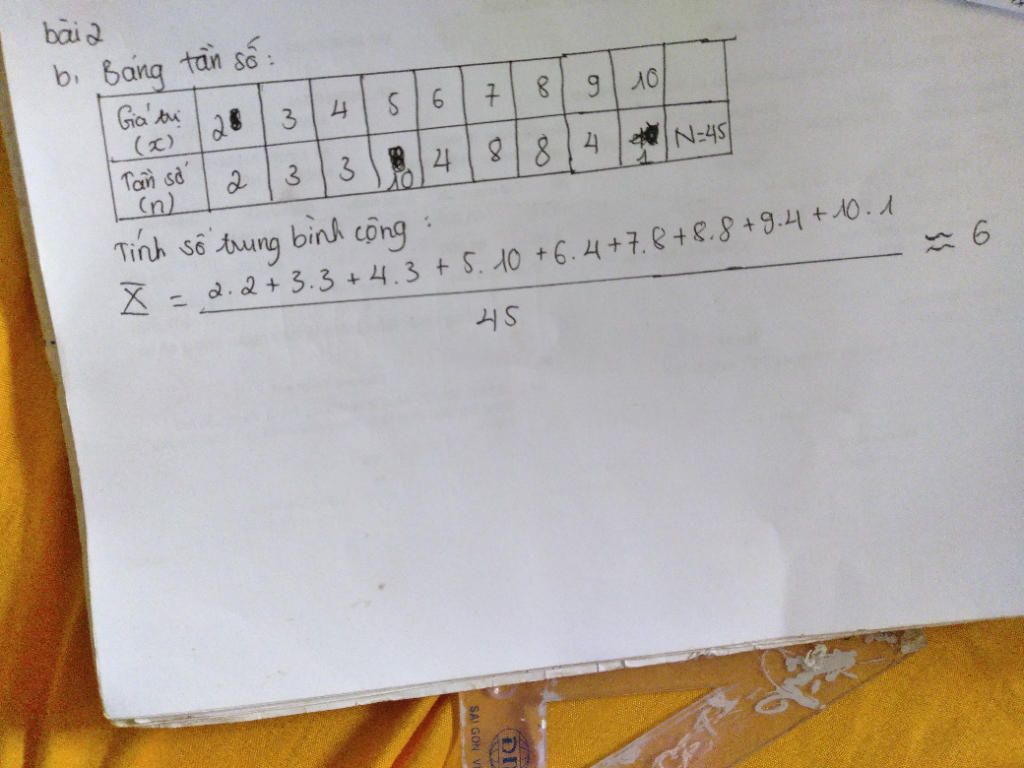 bài 2
b, Bảng tần số:
Giá trị (x) 2 3 4 5 6 7 8 9 10
Tần số (n) 2 3 3 10 4 8 8 4 1 N=45
Tính số trung bình cộng:
X̄ = 2.2 + 3.3 + 4.3 + 5.10 + 6.4 + 7.8 + 8.8 + 9.4 + 10.1 ≈ 6
45
SAI GON